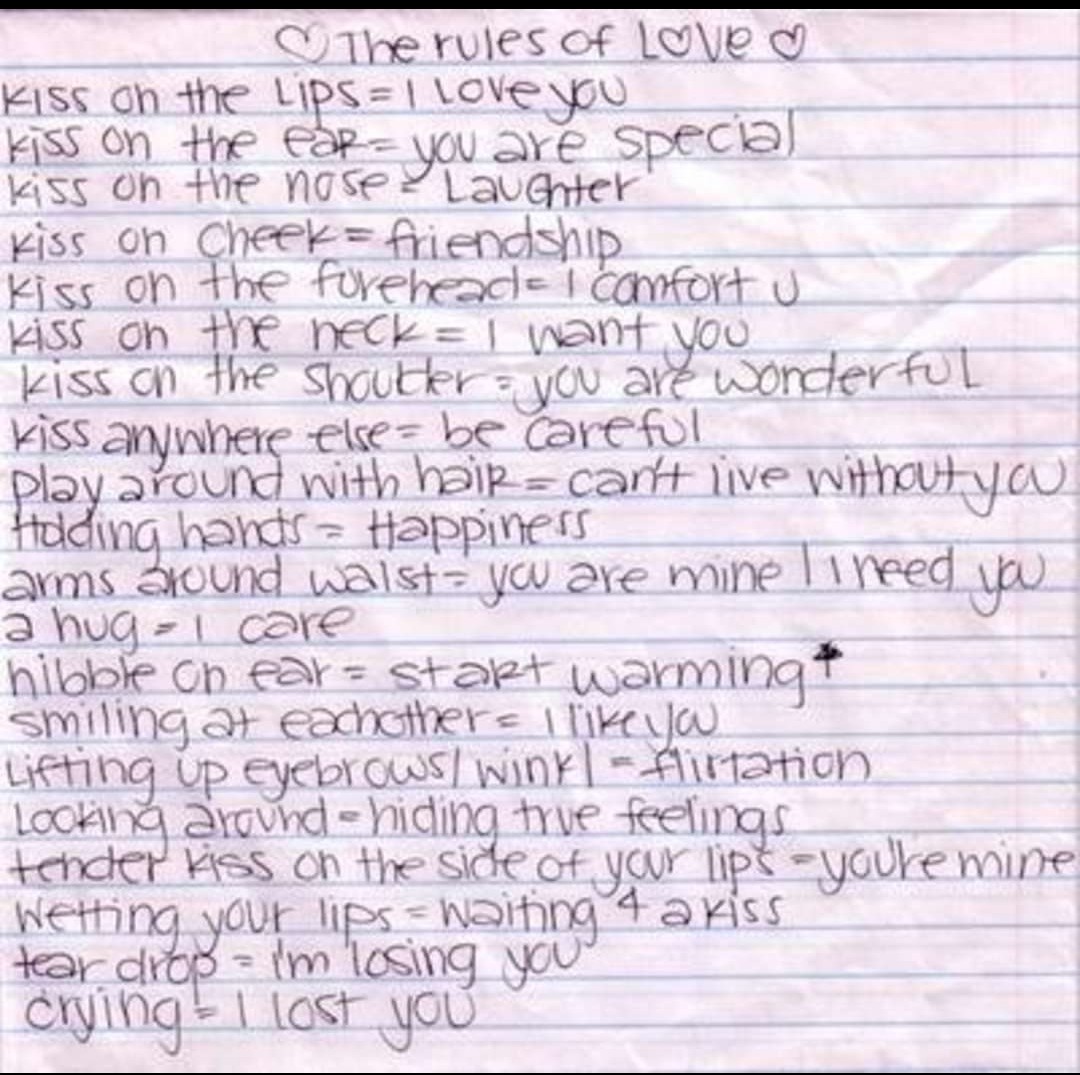 ♡ The rules of Love ♡
kiss on the Lips = I Love you
kiss on the ear = you are special
kiss on the nose = Laughter
kiss on Cheek = friendship
kiss on the forehead = I comfort u
kiss on the neck = I want you
kiss on the shoulder = you are wonderful
kiss anywhere else = be careful
play around with hair = can't live without you
Holding hands = Happiness
arms around waist = you are mine | i need you
a hug = I care
nibble on ear = start warming
smiling at eachother = I like you
Lifting up eyebrows | wink | = flirtation
Looking around = hiding true feelings
tender kiss on the side of your lips = you're mine
wetting your lips = waiting 4 a kiss
tear drop = i'm losing you
crying = I lost you